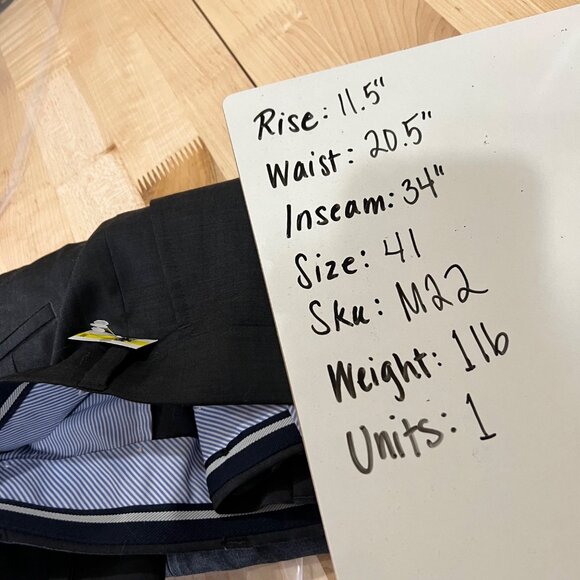 Rise: 11.5"
Waist: 20.5"
Inseam: 34"
Size: 41
Sku: M22
Weight: 1lb
Units: 1